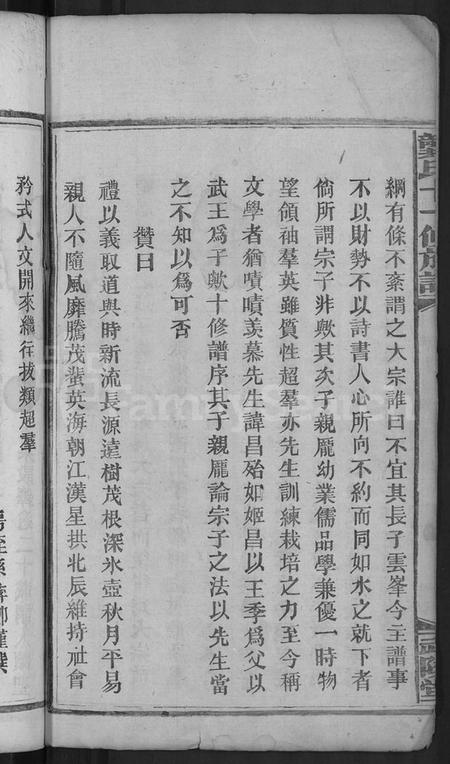 綱有條不紊謂之大宗誰曰不宜其長子雲峯今主譜事
不以財勢不以詩書人心所向不約而同如水之就下者
倘所謂宗子非歟其次子親龎幼業儒品學兼優一時物
望領袖羣英雖質性超羣亦先生訓練栽培之力至今稱
文學者猶嘖嘖羡慕先生諱昌殆如姬昌以王季爲父以
武王爲子歟十修譜序其子親龎論宗子之法以先生當
之不知以爲可否
贊曰
禮以義取道與時新流長源遠樹茂根深氷壺秋月平易
親人不隨風靡騰茂蜚英海朝江漢星拱北辰維持社會
矜式人文開來繼往拔類超羣
龔氏十一修族譜
FamilySearch